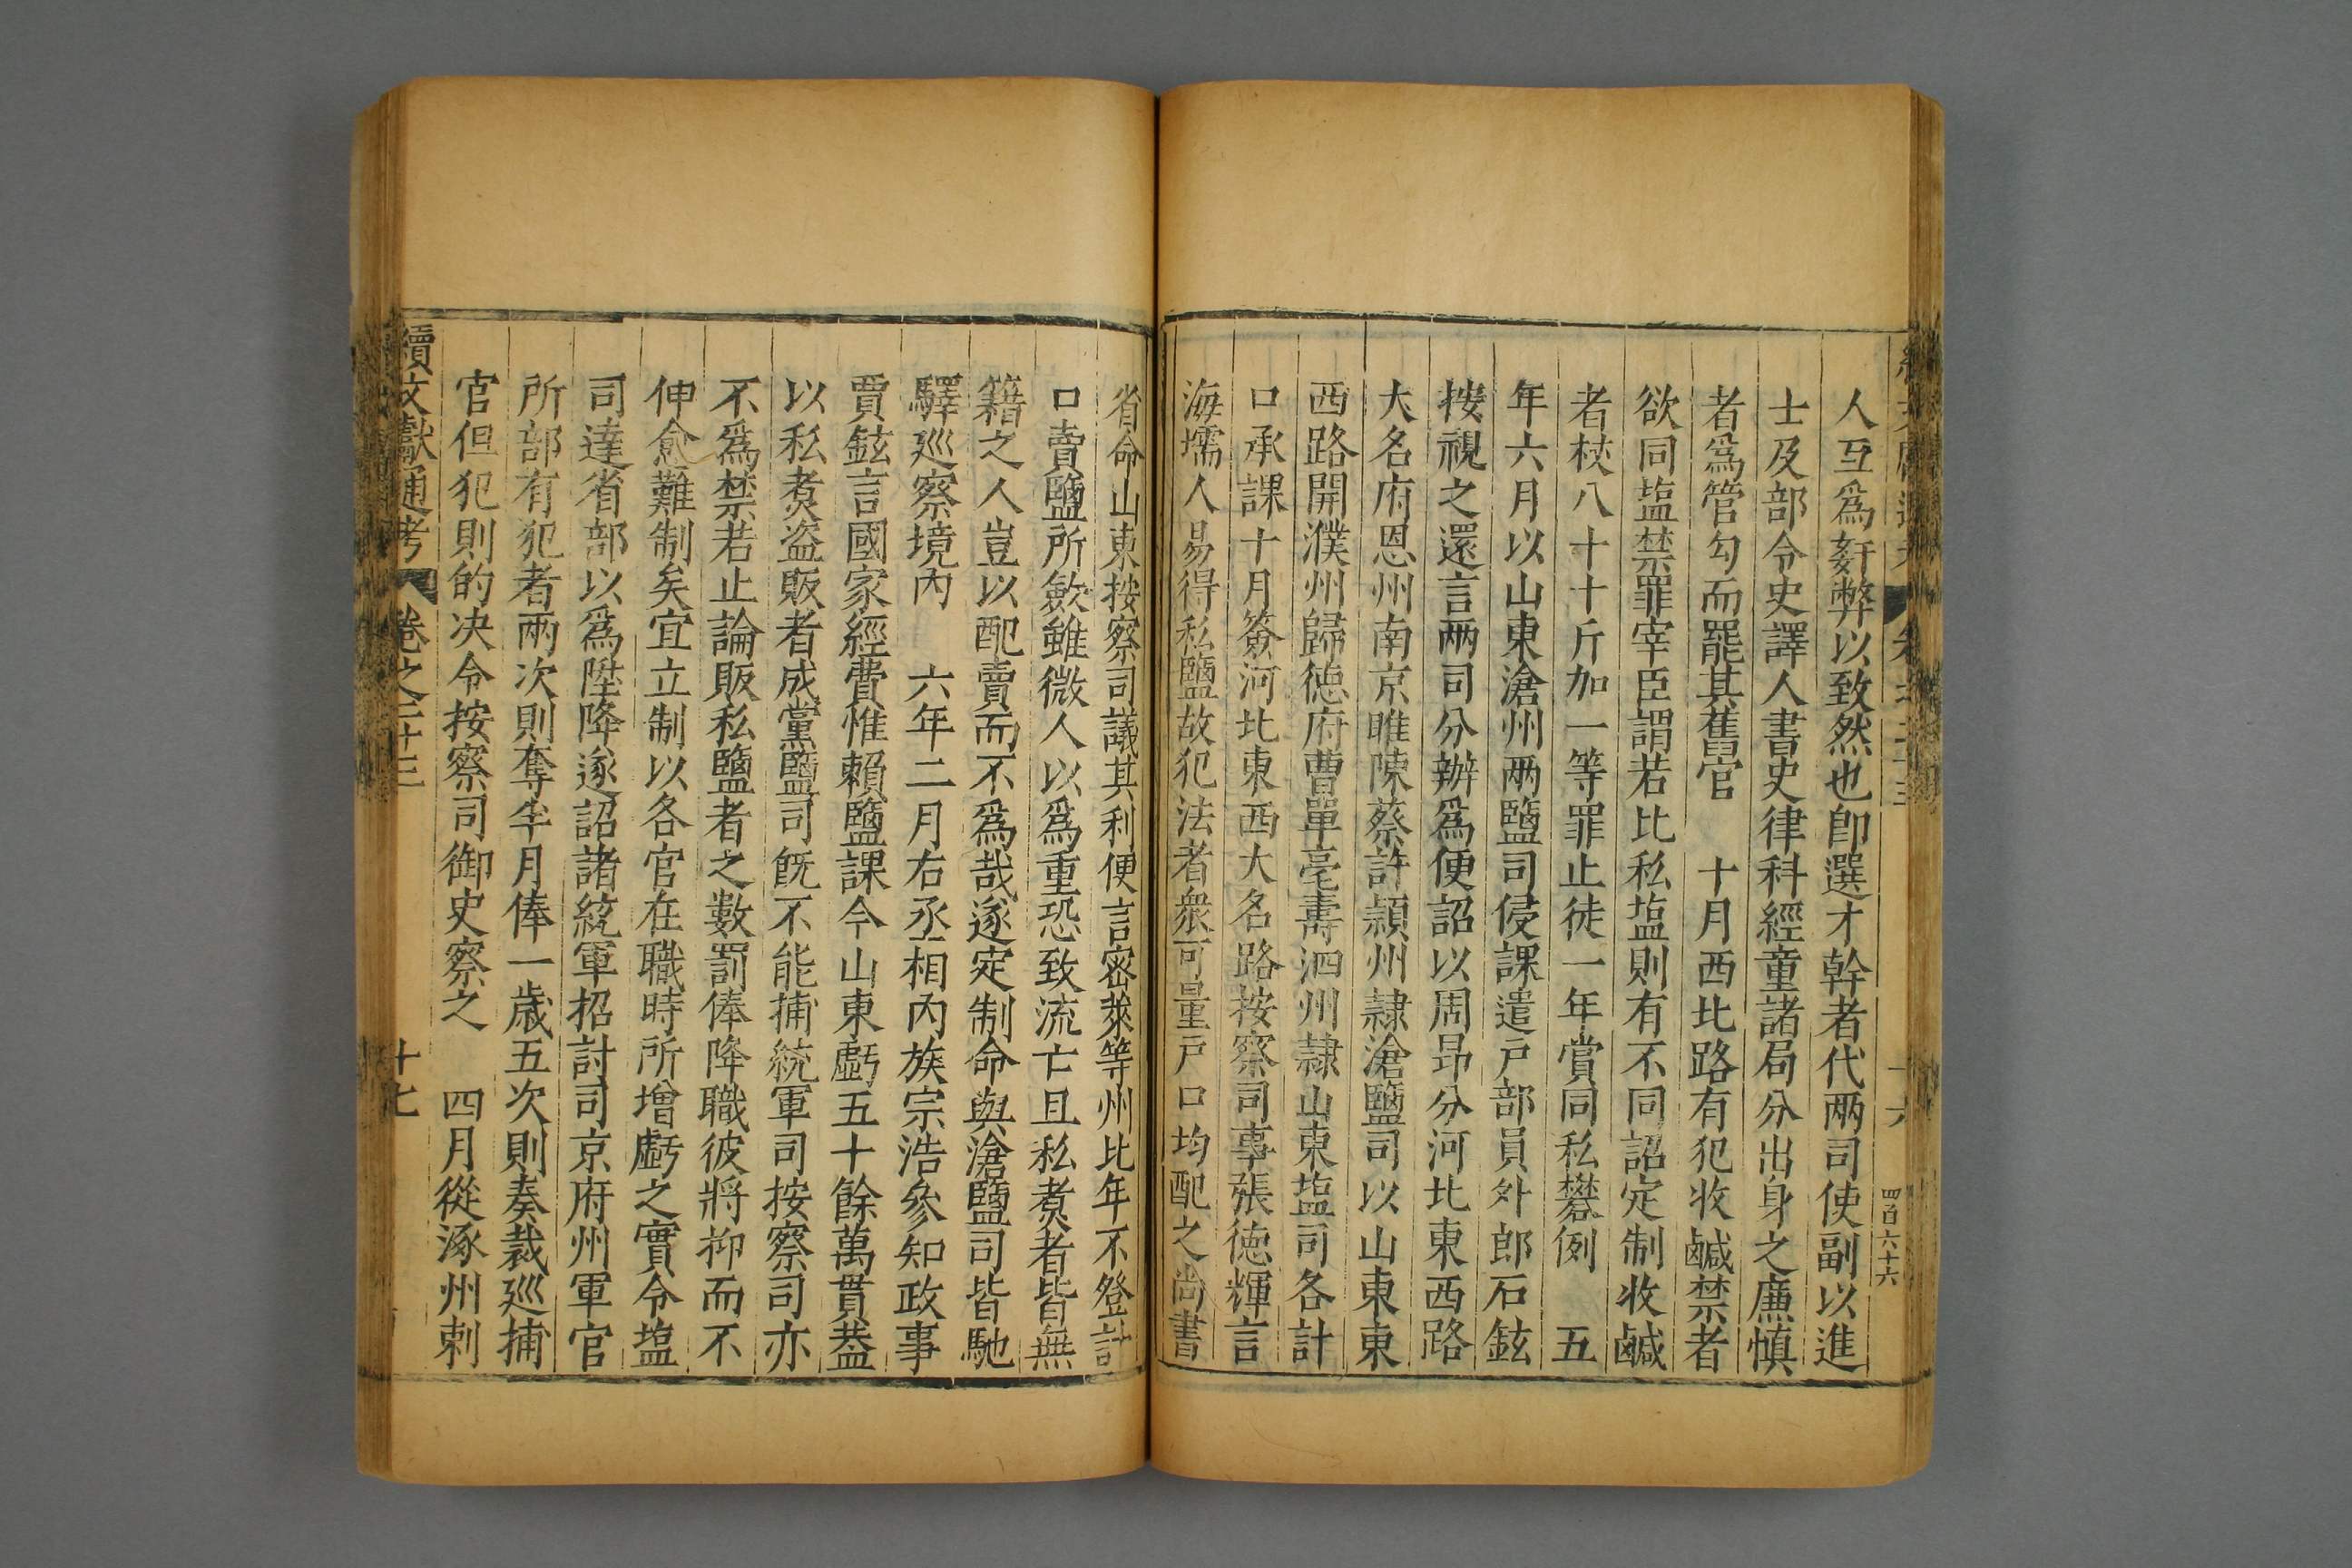 人互爲姧弊以致然也卽選才幹者代兩司使副以進
士及部令史譯人書史律科經童諸局分出身之廉慎
者爲管勾而罷其舊官　十月西北路有犯收鹹禁者
欲同塩禁罪宰臣謂若比私塩則有不同詔定制收鹹
者杖八十十斤加一等罪止徒一年賞同私礬例　五
年六月以山東滄州兩鹽司侵課遣戸部員外郎石鉉
按視之還言兩司分辦爲便詔以周昻分河北東西路
大名府恩州南京睢陳蔡許潁州隷滄鹽司以山東東
西路開濮州歸德府曹單亳壽泗州隷山東塩司各計
口承課十月簽河北東西大名路按察司事張德輝言
海壖人易得私鹽故犯法者衆可量戸口均配之尚書
省命山東按察司議其利便言密萊等州比年不登計
口賣鹽所斂雖微人以爲重恐致流亡且私煑者皆無
籍之人豈以配賣而不爲哉遂定制命與滄鹽司皆馳
驛廵察境內　六年二月右丞相內族宗浩參知政事
賈鉉言國家經費惟賴鹽課今山東虧五十餘萬貫葢
以私煑盜販者成黨鹽司旣不能捕統軍司按察司亦
不爲禁若止論販私鹽者之數罰俸降職彼將抑而不
伸愈難制矣宜立制以各官在職時所增虧之實令塩
司達省部以爲陞降遂詔諸統軍招討司京府州軍官
所部有犯者兩次則奪半月俸一歲五次則奏裁廵捕
官但犯則的决令按察司御史察之　四月從涿州刺
續文獻通考　卷之二十三　十七
四百六十六